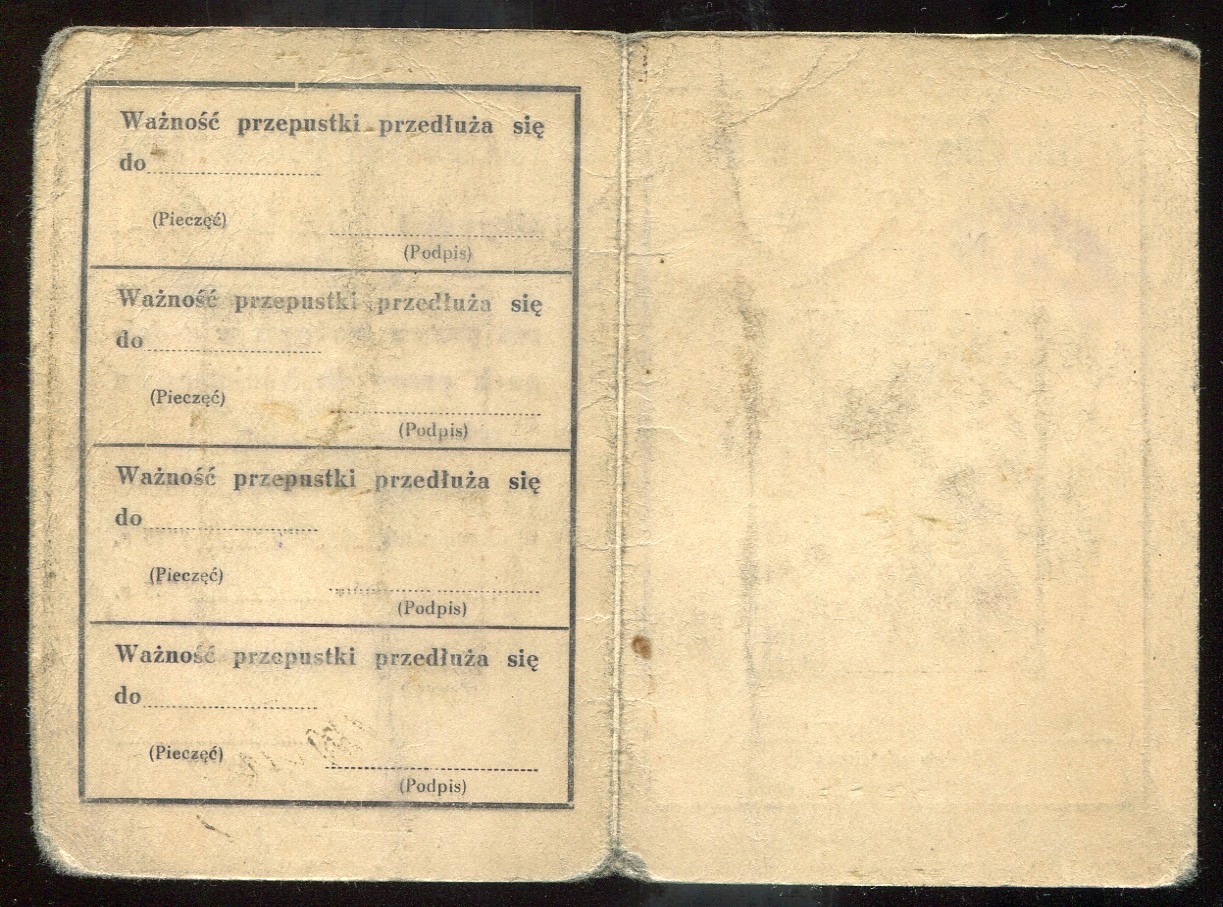 Ważność przepustki przedłuża się
do
(Pieczęć)
(Podpis)
Ważność przepustki przedłuża się
do
(Pieczęć)
(Podpis)
Ważność przepustki przedłuża się
do
(Pieczęć)
(Podpis)
Ważność przepustki przedłuża się
do
(Pieczęć)
(Podpis)